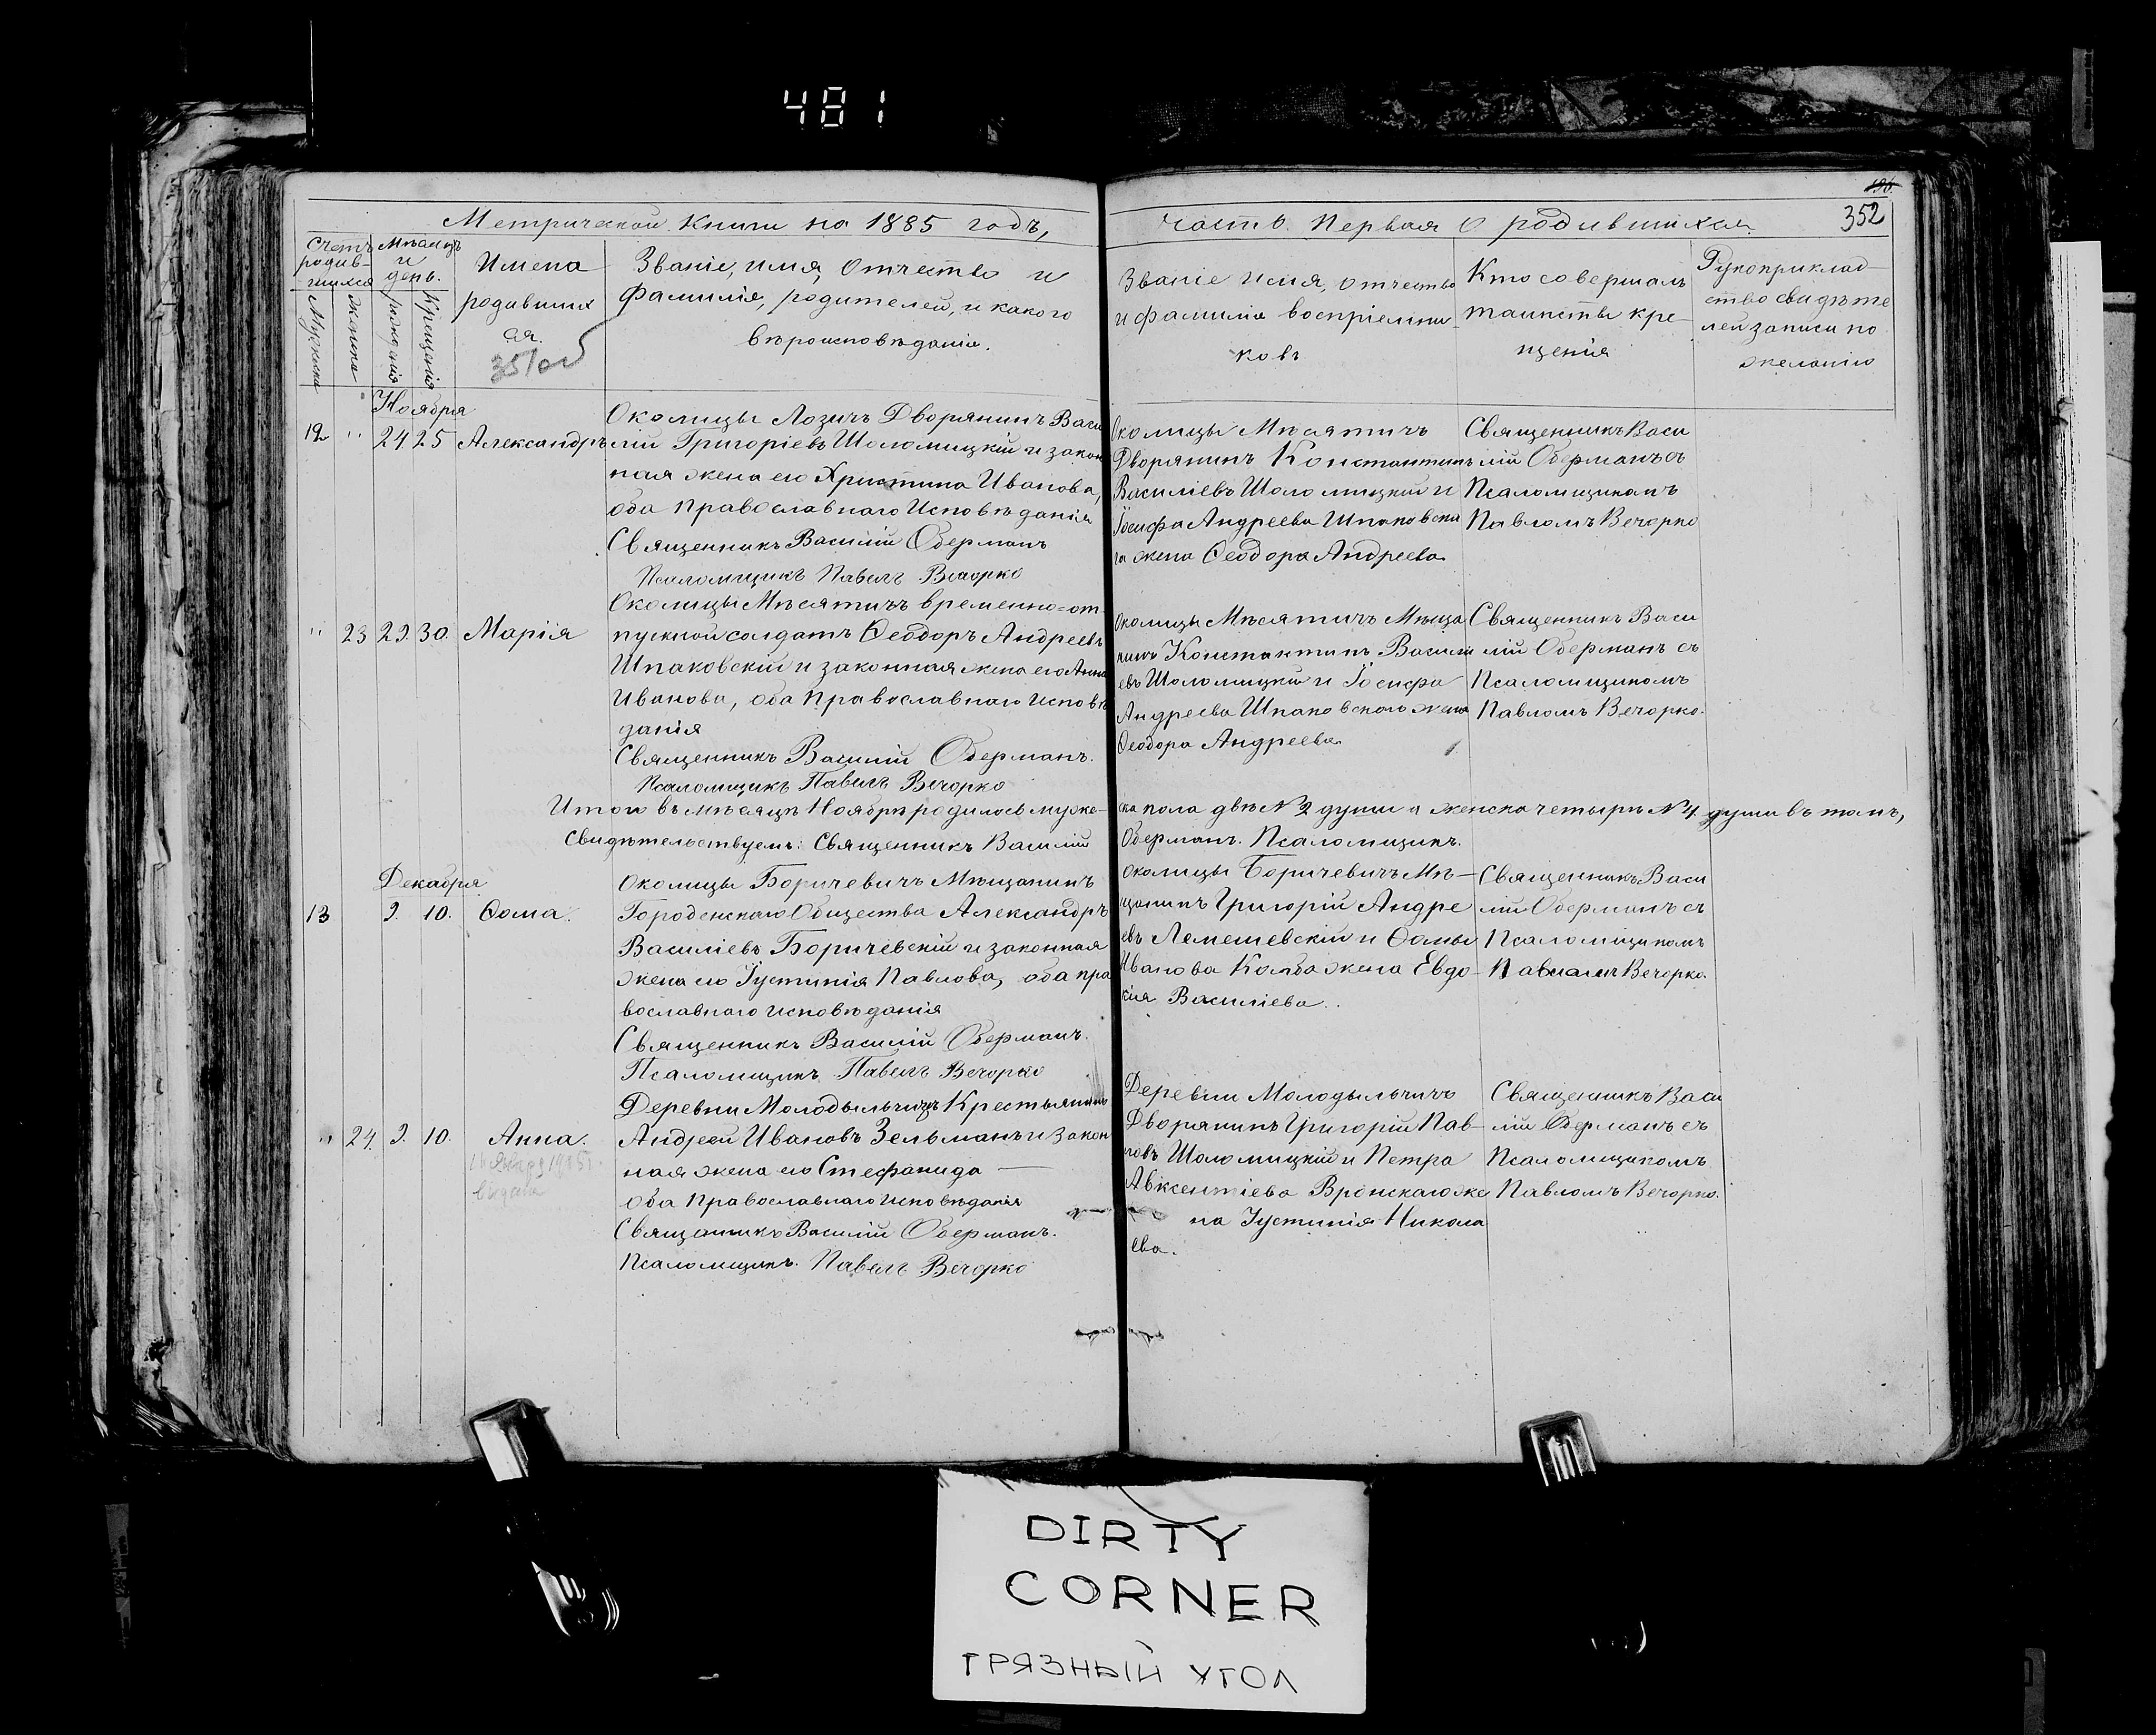 481
Метрической книги на 1885 годъ,
часть первая о родившихся.
352
Счетъ родив-шихся
Мужеска
Женска
Мѣсяцъ и день.
рожденія
Крещенія
Имена
родивших
ся.
Званіе, имя, отчество и
фамилія, родителей, и какого
вѣроисповѣданія.
Званіе имя, отчество
и фамилія воспріемни
ковъ
Кто совершалъ
таинство кре-
щенія
Рукоприклад-
ство свидѣте
лей записи по
желанію
Ноября
12 " 24 25 Александръ
Околицы Лозичъ Дворянинъ Васи
лій Григоріевъ Шоломицкій и закон
ная жена его Христина Иванова,
оба Православнаго Исповѣданія
Священникъ Василій Оберманъ
Псаломщикъ Павелъ Вечорко
Околицы Мѣсятичъ
Дворянинъ Константинъ
Василіевъ Шоломицкій и
Іосифа Андреева Шпаковска
го жена Ѳеодора Андреева
Священникъ Васи
лій Оберманъ съ
Псаломщикомъ
Павломъ Вечорко
" 23 29. 30. Марія
Околицы Мѣсятичъ временно-от-
пускной солдатъ Ѳеодоръ Андреевъ
Шпаковскій и законная жена его Анна
Иванова, оба Православнаго исповѣ
данія
Священникъ Василій Оберманъ.
Псаломщикъ Павелъ Вечорко
Околицы Мѣсятичъ Мѣща
нинъ Константинъ Васили
евъ Шоломицкій и Іосифа
Андреева Шпаковскаго жена
Ѳеодора Андреева
Священникъ Васи
лій Оберманъ съ
Псаломщикомъ
Павломъ Вечорко.
Итого въ мѣсяцѣ Ноябрѣ родилось муже-
ска пола двѣ № 2 души а женска четырѣ № 4 души въ томъ,
Свидѣтельствуемъ: Священникъ Василій
Оберманъ. Псаломщикъ.
Декабря
13 9. 10. Ѳома.
Околицы Боричевичъ Мѣщанинъ
Городенскаго Общества Александръ
Василіевъ Боричевскій и законная
жена его Іустинія Павлова, оба пра
вославнаго исповѣданія
Священникъ Василій Оберманъ.
Псаломщикъ Павелъ Вечорко
Околицы Боричевичъ Мѣ-
щанинъ Григорій Андре
евъ Лемешевскій и Ѳомы
Иванова Колба жена Евдо-
кія Василіева.
Священникъ Васи
лій Оберманъ съ
Псаломщикомъ
Павломъ Вечорко.
" 24. 9. 10. Анна.
Деревни Молодыльчичъ Крестьянинъ
Андрей Ивановъ Зельманъ и закон
ная жена его Стефанида —
оба Православнаго исповѣданія
Священникъ Василій Оберманъ.
Псаломщикъ. Павелъ Вечорко
Деревни Молодыльчичъ
Дворянинъ Григорій Пав-
ловъ Шоломицкій и Петра
Авксентіева Вронскаго же
на Іустинія Никола
ева.
Священникъ Васи
лій Оберманъ съ
Псаломщикомъ
Павломъ Вечорко.
DIRTY
CORNER
ГРЯЗНЫЙ УГОЛ